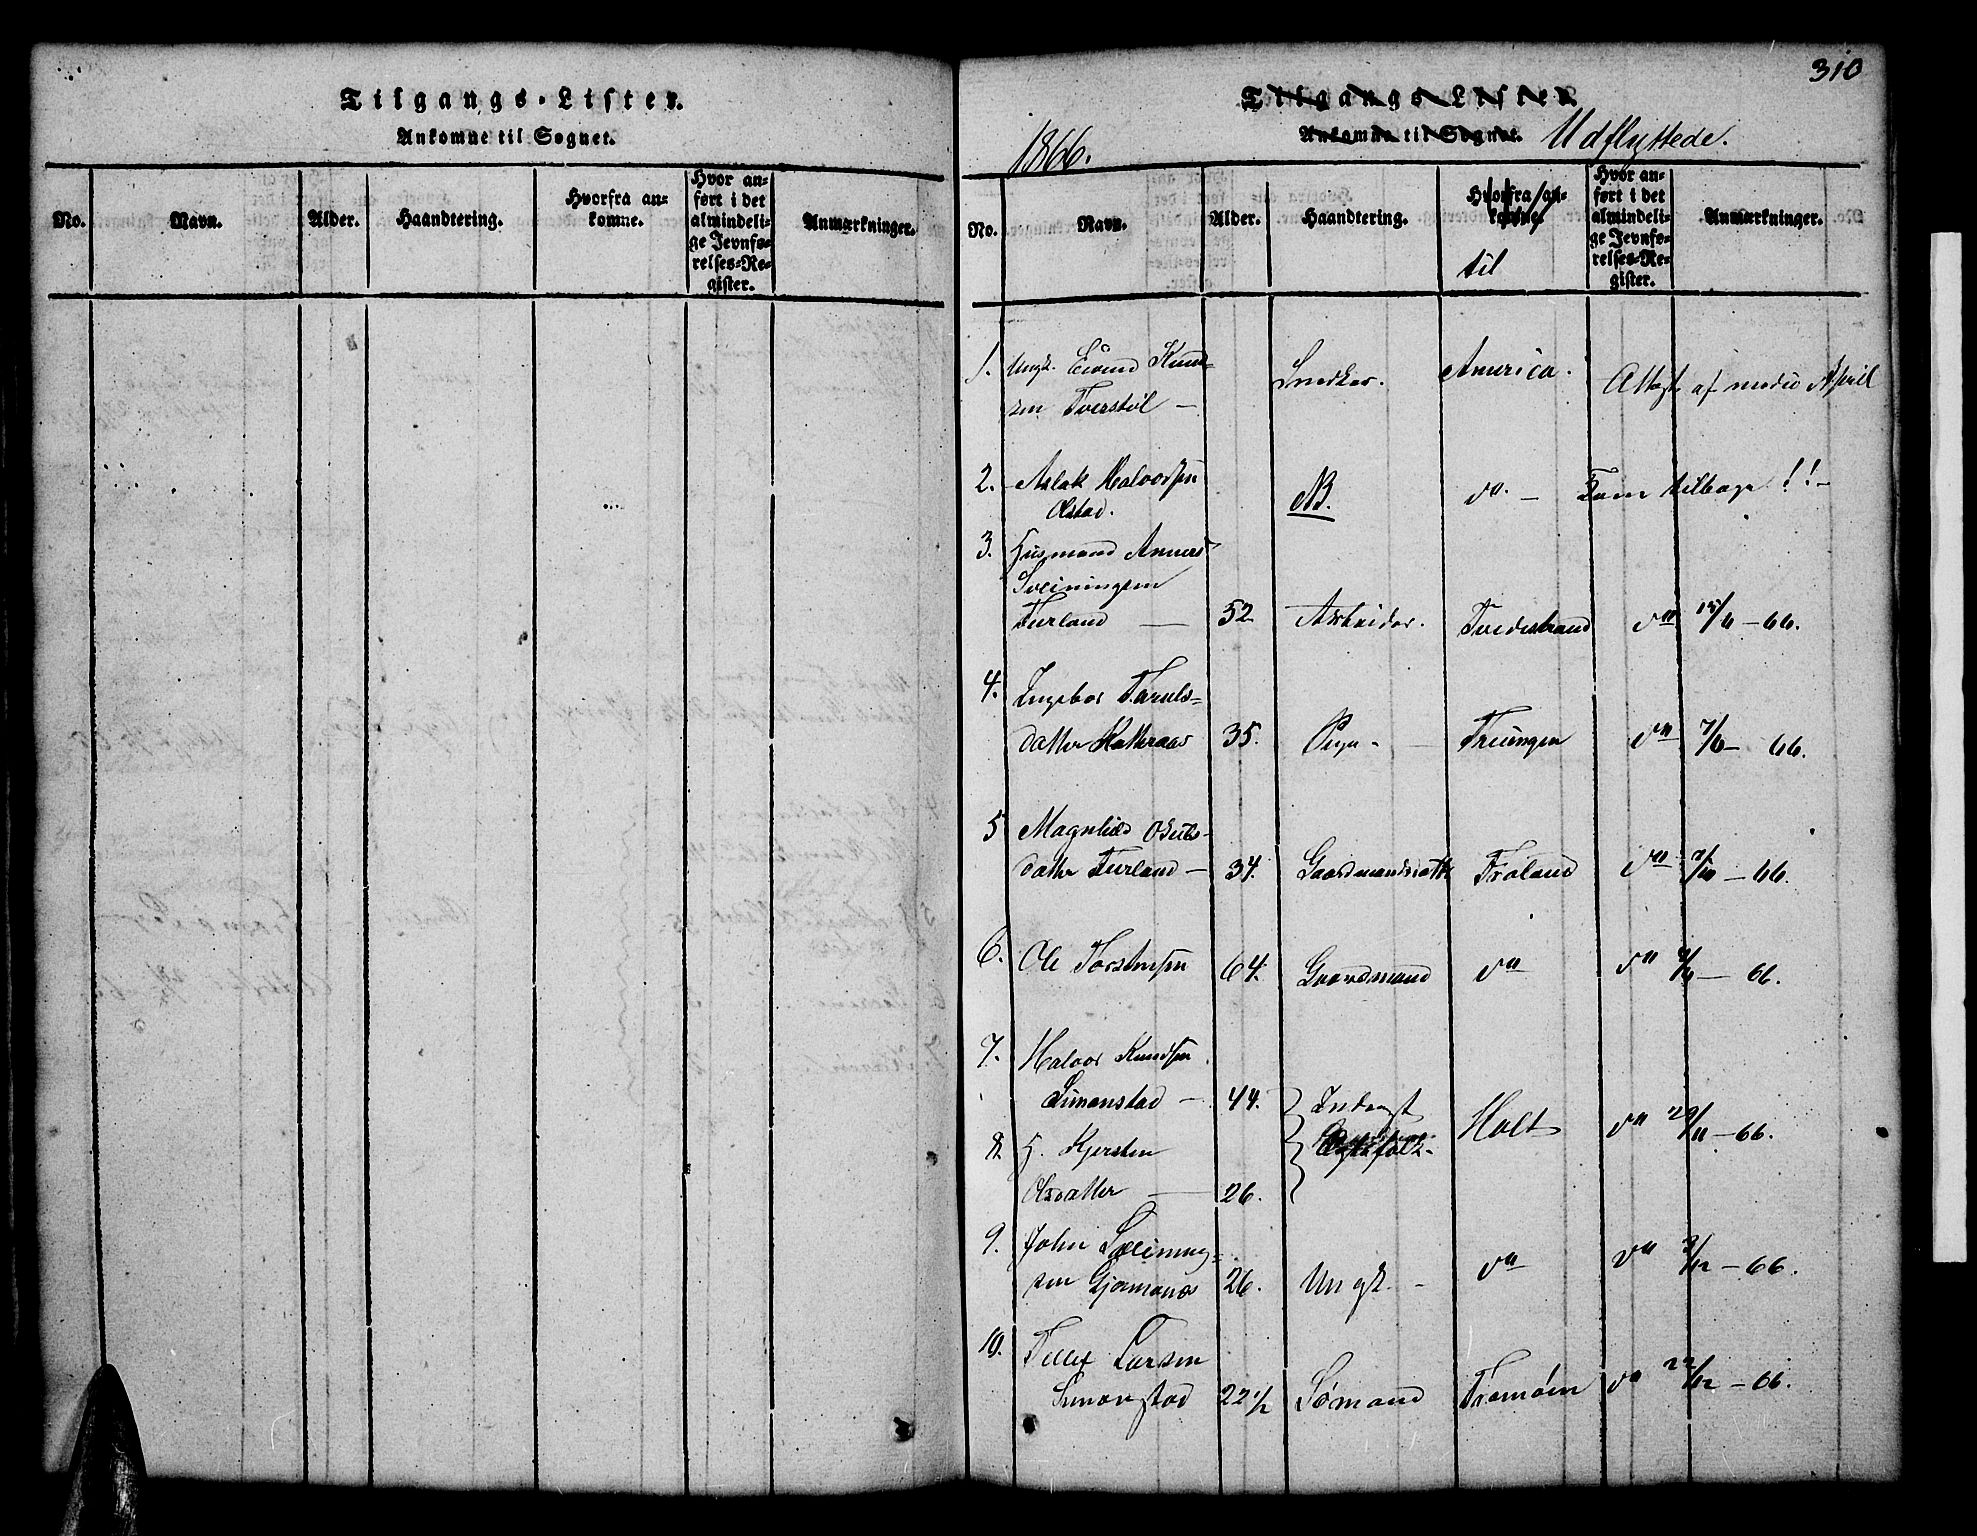 Tilgangs-Lister.
Ankomne til Sognet.
No.
Navn.
Alder.
Haandtering.
Hvorfra an-
komne.
Hvor an-
ført i det
almindeli-
ge Jevnfø-
relses-Re-
gister.
Anmærkninger.
310
Tilgangs-Lister
Ankomne til Sognet. Udflyttede.
1866.
No.
Navn.
Alder.
Haandtering.
Hvorfra an-
komne
til
Hvor an-
ført i det
almindeli-
ge Jevnfø-
relses-Re-
gister.
Anmærkninger.
1. Ungk. Eivind Knud-
sen Tverstøl — Snedker. America. Attest af medio April
2. Aslak Halvorsen
Ølstad. NB. do. — Kom tilbage!! —
3. Husmand Anders
Sveiningsen
Furland — 52 Arbeider. Tvedestrand do 15/6 — 66.
4. Ingebor Taruls-
datter Katteraas 35. Pige — Treungen do 7/6 — 66.
5 Magnhild
datter Furland — 34. Gaardmandsdatter Froland do — 66.
6. Ole Torstensen 64. Gaardmand do do — 66.
7. Halvor Knudsen
Simonstad — 44. Inderst
8. H. Kjersten
Olsdatter — 26. folk. Holt do 29/11 — 66.
9. John Sveinung-
sen Gjermanes 26. Ungk. — do do 3/12 — 66.
10. Tellef Larsen
Simonstad 22 1/2 Sømand Tromøen do 22/12 — 66.